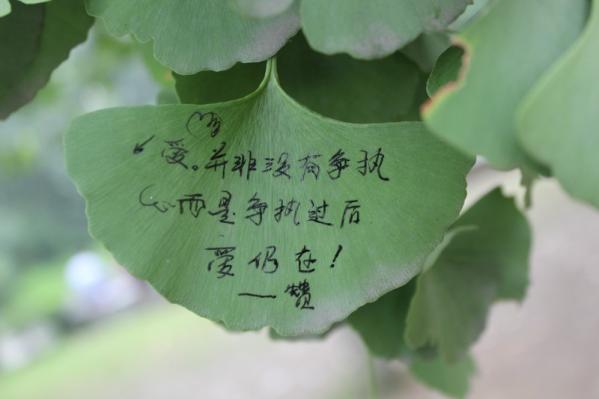 爱。并非没有争执
而是争执过后
爱仍在！
—赞